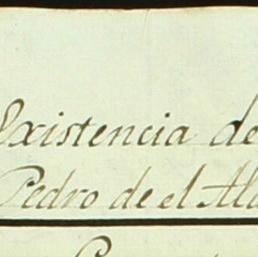 Existencia de
Pedro de el Ala